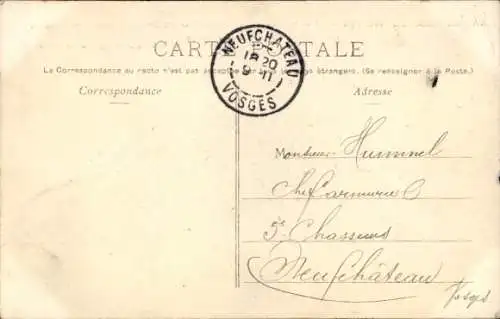 CARTE POSTALE
La Correspondance au recto n'est pas acceptée par tous pays étrangers. (Se renseigner à la Poste.)
NEUFCHATEAU
18 20
9 11
VOSGES
Correspondance
Adresse
Monsieur Hummel
Chef armurier
5e Chasseurs
Neufchâteau
Vosges